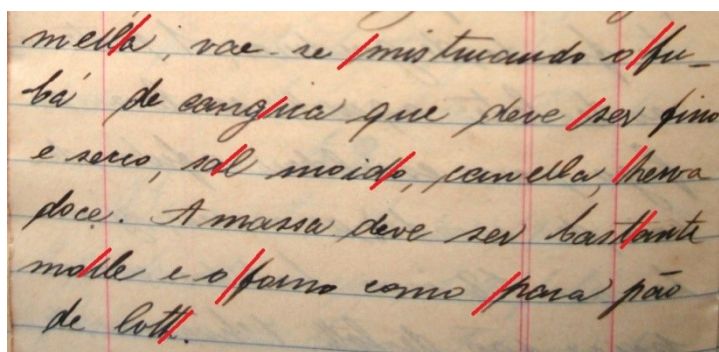 mella, vae-se misturando o fu-
bá de cangica que deve ser fino
e secco, sal moido, canella, herva
doce. A massa deve ser bastante
molle e o forno como para pão
de lott.